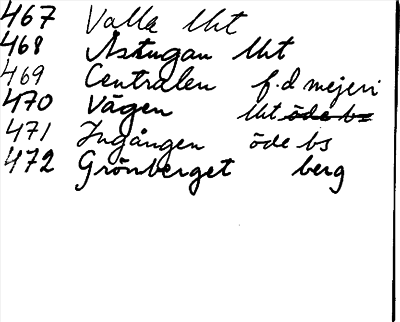 467 Valla lht
468 Åstugan lht
469 Centralen f.d mejeri
470 Vägen lht öde bs
471 Ingången öde bs
472 Grönberget berg